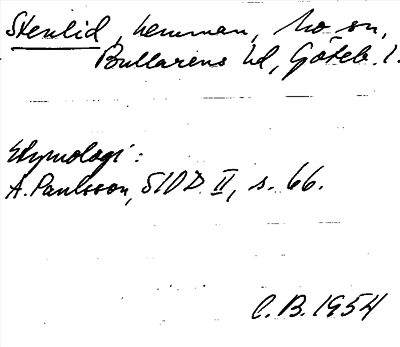 Stenlid, hemman, Mo sn,
Bullarens hd, Göteb. l.
Etymologi:
A. Paulsson, SIOD II, s. 66.
C. B. 1954